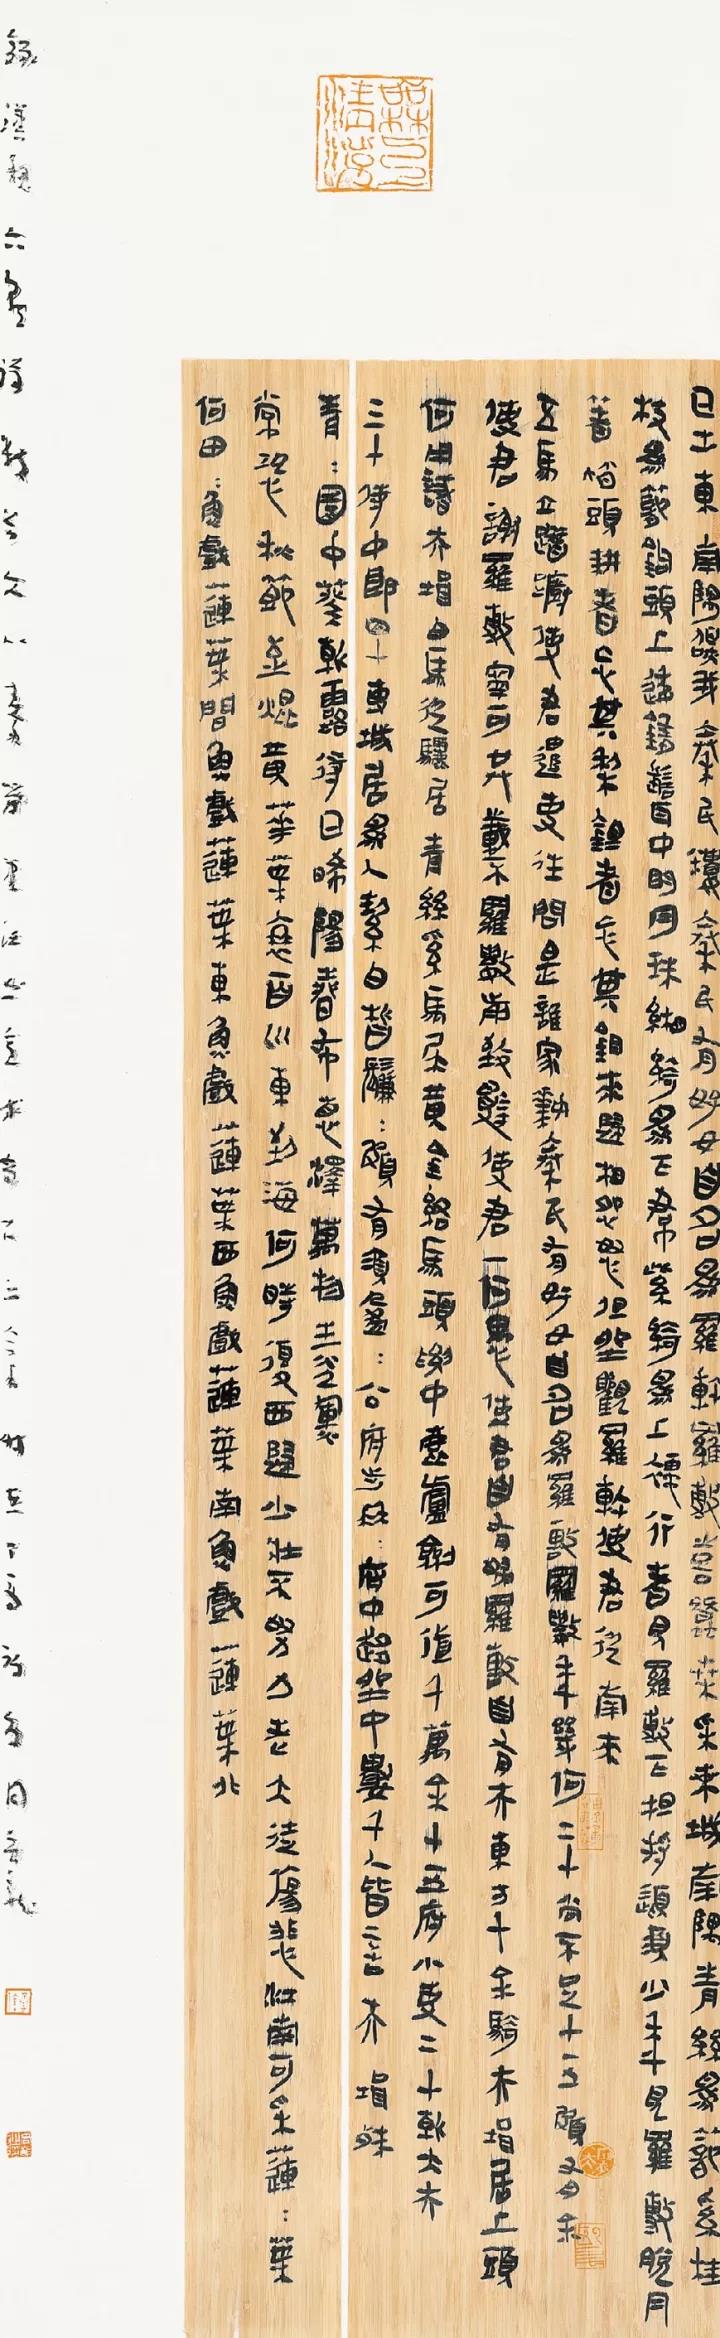 日出東南隅照我秦氏樓秦氏有好女自名為羅敷羅敷喜蠶桑采桑城南隅青絲為籠系桂
枝為籠鉤頭上倭墮髻耳中明月珠緗綺為下帬紫綺為上襦行者見羅敷下担捋髭須少年見羅敷脫冃
著帩頭耕者忘其犁鋤者忘其鋤來歸相怨怒但坐觀羅敷使君從南來
五馬立踟躕使君遣吏往問是誰家姝秦氏有好女自名為羅敷羅敷年幾何二十尚不足十五頗有余
使君謝羅敷寧可共載不羅敷前致辭使君一何愚使君自有婦羅敷自有夫東方千余騎夫壻居上頭
何用識夫壻白馬從驪居青絲系馬尾黃金絡馬頭腰中鹿盧劍可值千萬余十五府小吏二十朝大夫
三十侍中郎四十專城居為人絜白皙鬑:頗有須盈:公府步冉:府中趨坐中數千人皆言夫壻殊
青:園中葵朝露待日晞陽春布悳澤萬物生光輝
常恐秋節至焜黃華葉衰百川東到海何時復西歸少壯不努力老大徒傷悲江南可采蓮:葉
何田:魚戲蓮葉間魚戲蓮葉東魚戲蓮葉西魚戲蓮葉南魚戲蓮葉北
錄漢魏六